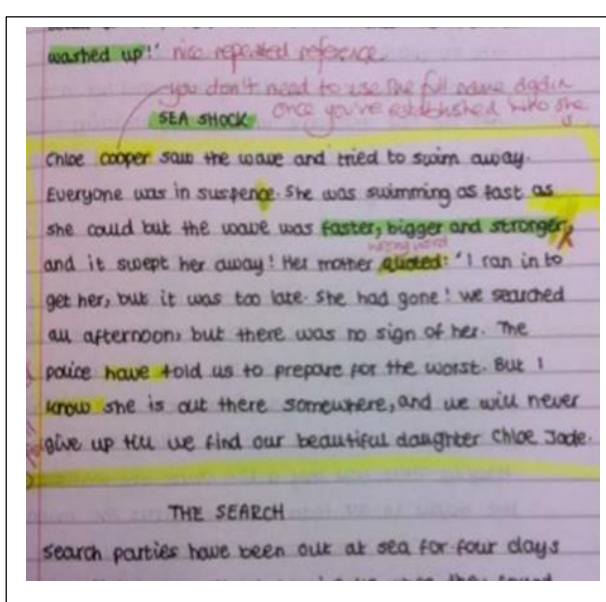 washed up!' nice repeated reference
you don't need to use the full name again
once you've established who she
is
SEA SHOCK
Chloe cooper saw the wave and tried to swim away.
Everyone was in suspence. She was swimming as fast as
she could but the wave was faster, bigger and stronger,
wrong word
and it swept her away! Her mother quoted: "I ran in to
get her, but it was too late. She had gone! we searched
all afternoon, but there was no sign of her. The
police have told us to prepare for the worst. But I
know she is out there somewhere, and we will never
give up till we find our beautiful daughter Chloe Jade.
THE SEARCH
search parties have been out at sea for four days